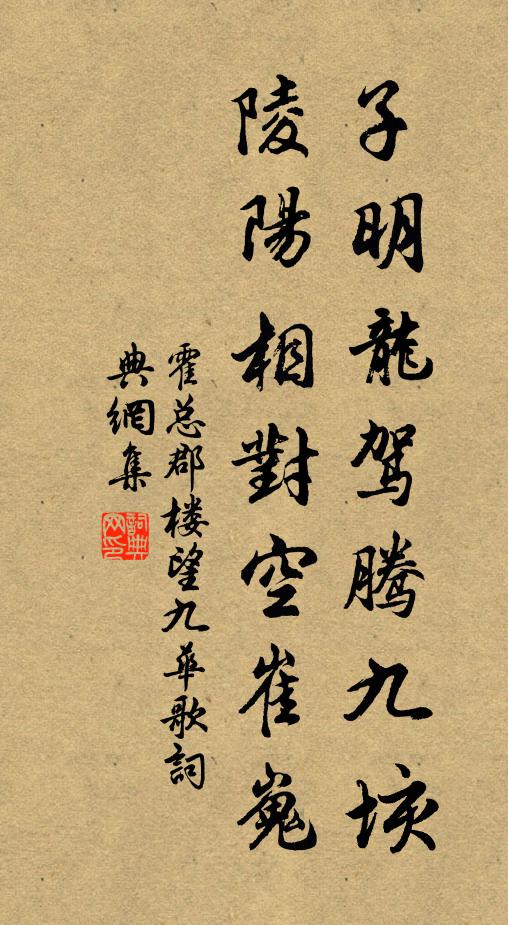 子明龍駕騰九垓
陵陽相對空崔嵬
霍总郡楼望九華歌詞
典網集
詞典网印